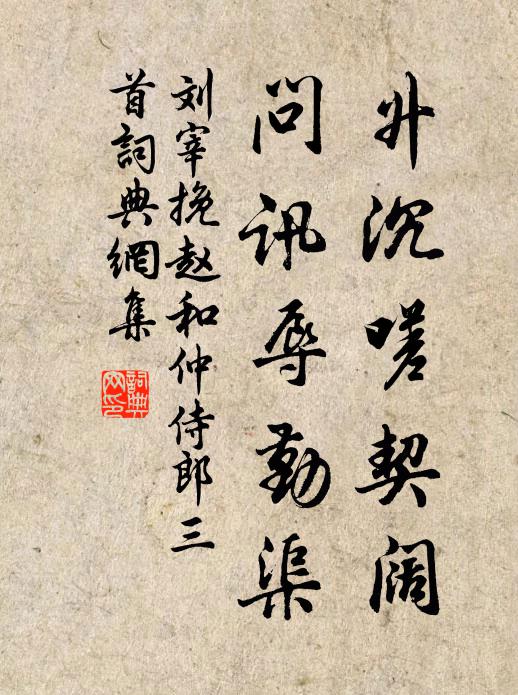 升沉嗟契阔
问讯辱勤渠
刘宰挽赵和仲侍郎三
首詞典網集
詞典网印